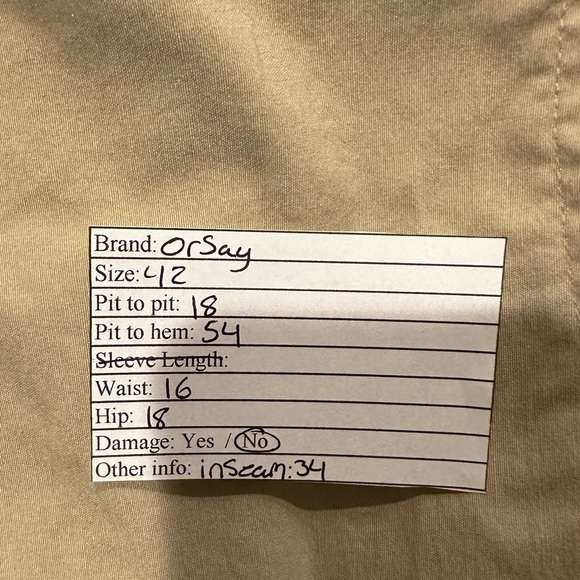 Brand: Orsay
Size: 42
Pit to pit: 18
Pit to hem: 54
Sleeve Length:
Waist: 16
Hip: 18
Damage: Yes / No
Other info: inseam: 34